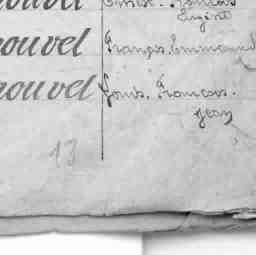 Eugène
nouvel François, Emmanuel
nouvel Louis, François.
Jean
13